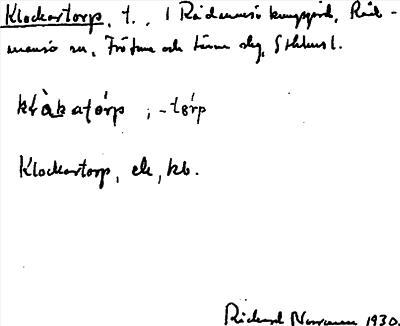 Klockartorp, t., 1 Rådmansö kungsgård, Råd-
mansö sn, Frötuna och Länna skg, Sthlms l.
klåkatårp ; -tårp
Klockartorp, ek, kb.
Rickard 1930.